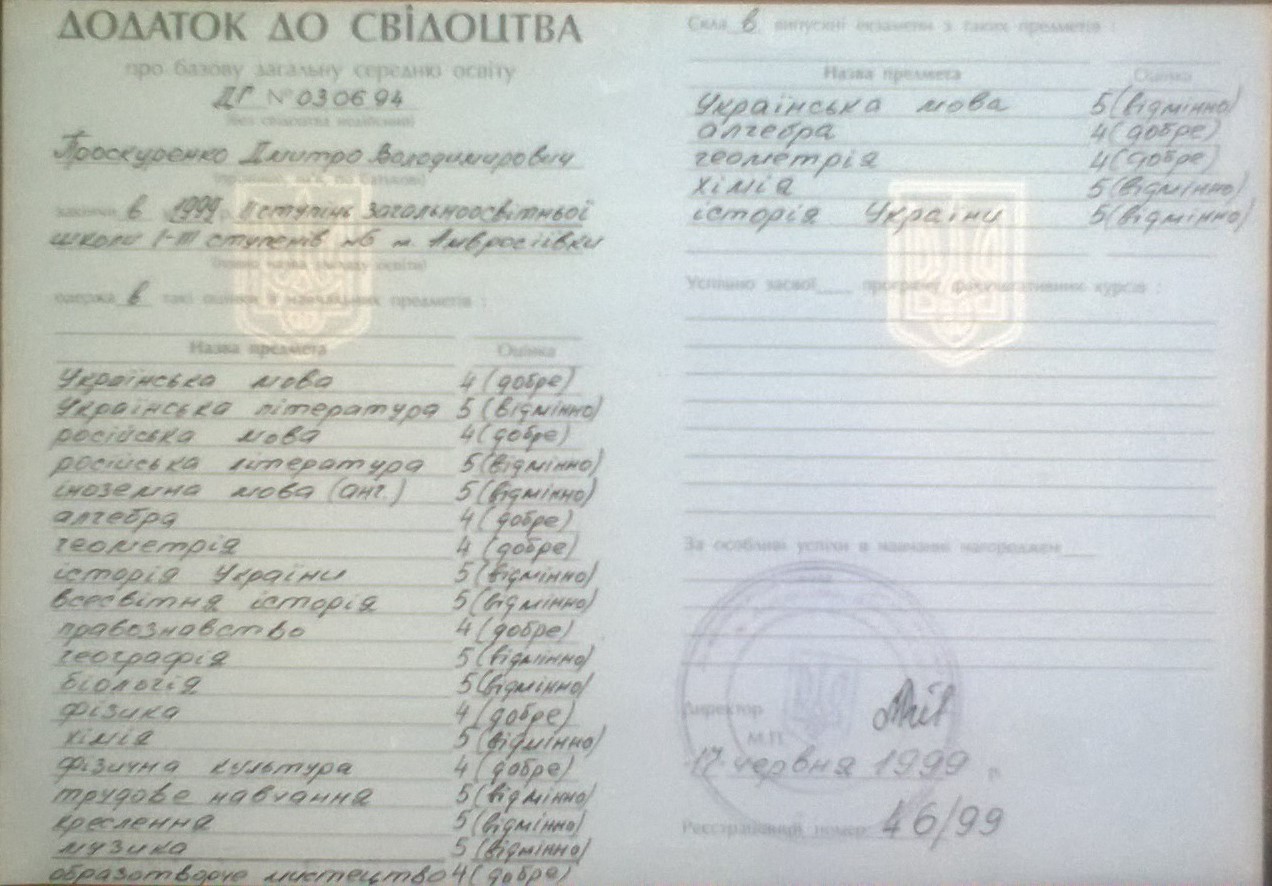 ДОДАТОК ДО СВІДОЦТВА
про базову загальну середню освіту
ДГ №030694
(без свідоцтва недійсний)
Проскуренко Дмитро Володимирович
(прізвище, ім'я, по батькові)
закінчи в 1999 р. ІІ ступінь загальноосвітньої
школи І-ІІІ ступенів №6 м. Амвросіївки
(повна назва закладу освіти)
одержа в такі оцінки з навчальних предметів :
Назва предмета Оцінка
Українська мова 4 (добре)
Українська література 5 (відмінно)
російська мова 4 (добре)
російська література 5 (відмінно)
іноземна мова (анг.) 5 (відмінно)
алгебра 4 (добре)
геометрія 4 (добре)
історія України 5 (відмінно)
всесвітня історія 5 (відмінно)
правознавство 4 (добре)
географія 5 (відмінно)
біологія 5 (відмінно)
фізика 4 (добре)
хімія 5 (відмінно)
фізична культура 4 (добре)
трудове навчання 5 (відмінно)
креслення 5 (відмінно)
музика 5 (відмінно)
образотворче мистецтво 4 (добре)
Скла в випускні екзамени з таких предметів :
Назва предмета Оцінка
Українська мова 5 (відмінно)
алгебра 4 (добре)
геометрія 4 (добре)
хімія 5 (відмінно)
історія України 5 (відмінно)
Успішно засвої програму факультативних курсів :
За особливі успіхи в навчанні нагороджен
Директор
М.П.
17 червня 1999 р.
Реєстраційний номер 46/99